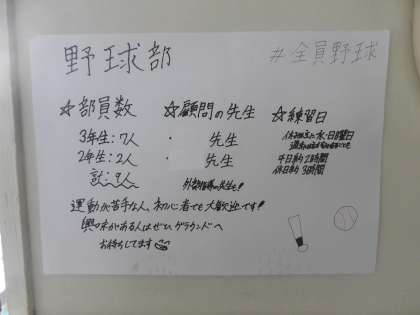 野球部
#全員野球
☆部員数
3年生:7人
2年生:2人
計:9人
☆顧問の先生
・ 先生
・ 先生
外部指導の先生も!
☆練習日
平日約2時間
休日約3時間
運動が苦手な人、初心者でも大歓迎です!!
興味がある人はぜひグラウンドへ
お待ちしてます